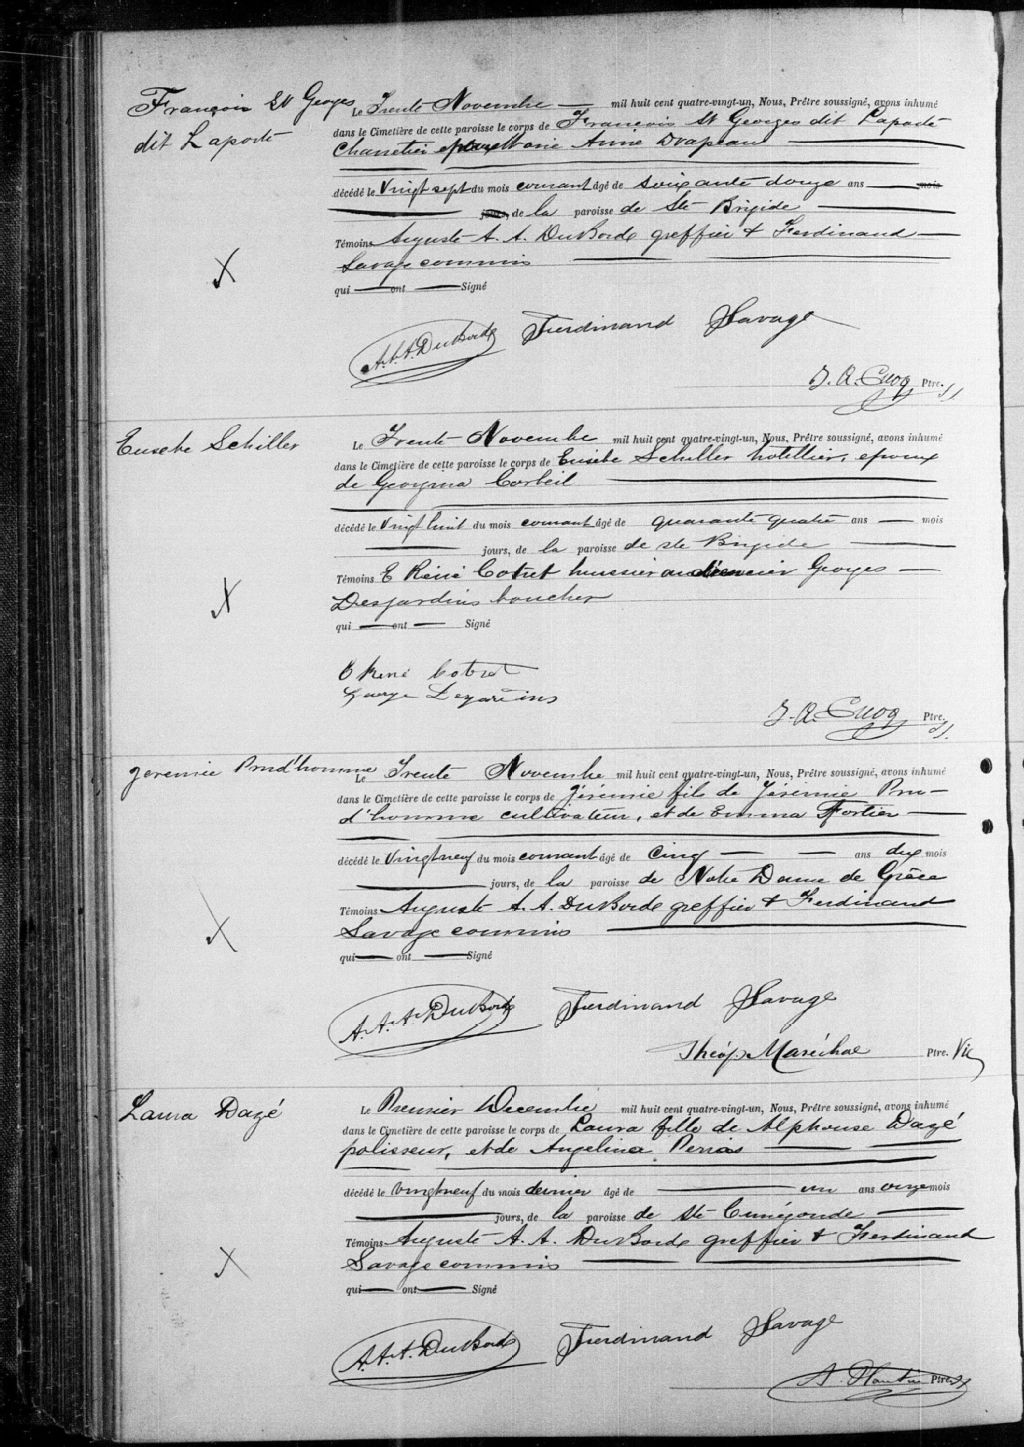 François St Georges
dit Laporte
Le Trente Novembre mil huit cent quatre-vingt-un, Nous, Prêtre soussigné, avons inhumé
dans le Cimetière de cette paroisse le corps de François St Georges dit Laporte
Charretier époux Marie Anne Drapeau
décédé le vingt sept du mois courant âgé de soixante douze ans mois
jours, de la paroisse de Ste Brigide
Témoins Auguste A. A. DuBorde greffier & Ferdinand
Savage commis
qui ont Signé
A.A.A. DuBorde Ferdinand Savage
J. A. Cuoq Ptre.
Eusebe Schiller
Le Trente Novembre mil huit cent quatre-vingt-un, Nous, Prêtre soussigné, avons inhumé
dans le Cimetière de cette paroisse le corps de Eusèbe Schiller hotellier, epoux
de Georgina Corbeil
décédé le vingt huit du mois courant âgé de quarante quatre ans mois
jours, de la paroisse de Ste Brigide
Témoins E René Cotret huissier audiencier Georges
Desjardins boucher
qui ont Signé
E René Cotret
George Desjardins
J. A. Cuoq Ptre.
Jeremie Prud'homme
Le Trente Novembre mil huit cent quatre-vingt-un, Nous, Prêtre soussigné, avons inhumé
dans le Cimetière de cette paroisse le corps de Jérémie fils de Jérémie Pru-
d'homme cultivateur, et de Emma Fortier
décédé le vingtneuf du mois courant âgé de Cinq ans dix mois
jours, de la paroisse de Notre Dame de Grâce
Témoins Auguste A. A. DuBorde greffier & Ferdinand
Savage commis
qui ont Signé
A. A. A. DuBorde Ferdinand Savage
Théop Maréchal Ptre. Vic
Laura Dazé
Le Premier Decembre mil huit cent quatre-vingt-un, Nous, Prêtre soussigné, avons inhumé
dans le Cimetière de cette paroisse le corps de Laura fille de Alphonse Dazé
polisseur, et de Angelina
décédé le vingtneuf du mois dernier âgé de un ans onze mois
jours, de la paroisse de Ste Cunégonde
Témoins Auguste A. A. DuBorde greffier & Ferdinand
Savage commis
qui ont Signé
A. A. A. DuBorde Ferdinand Savage
A. Ptre